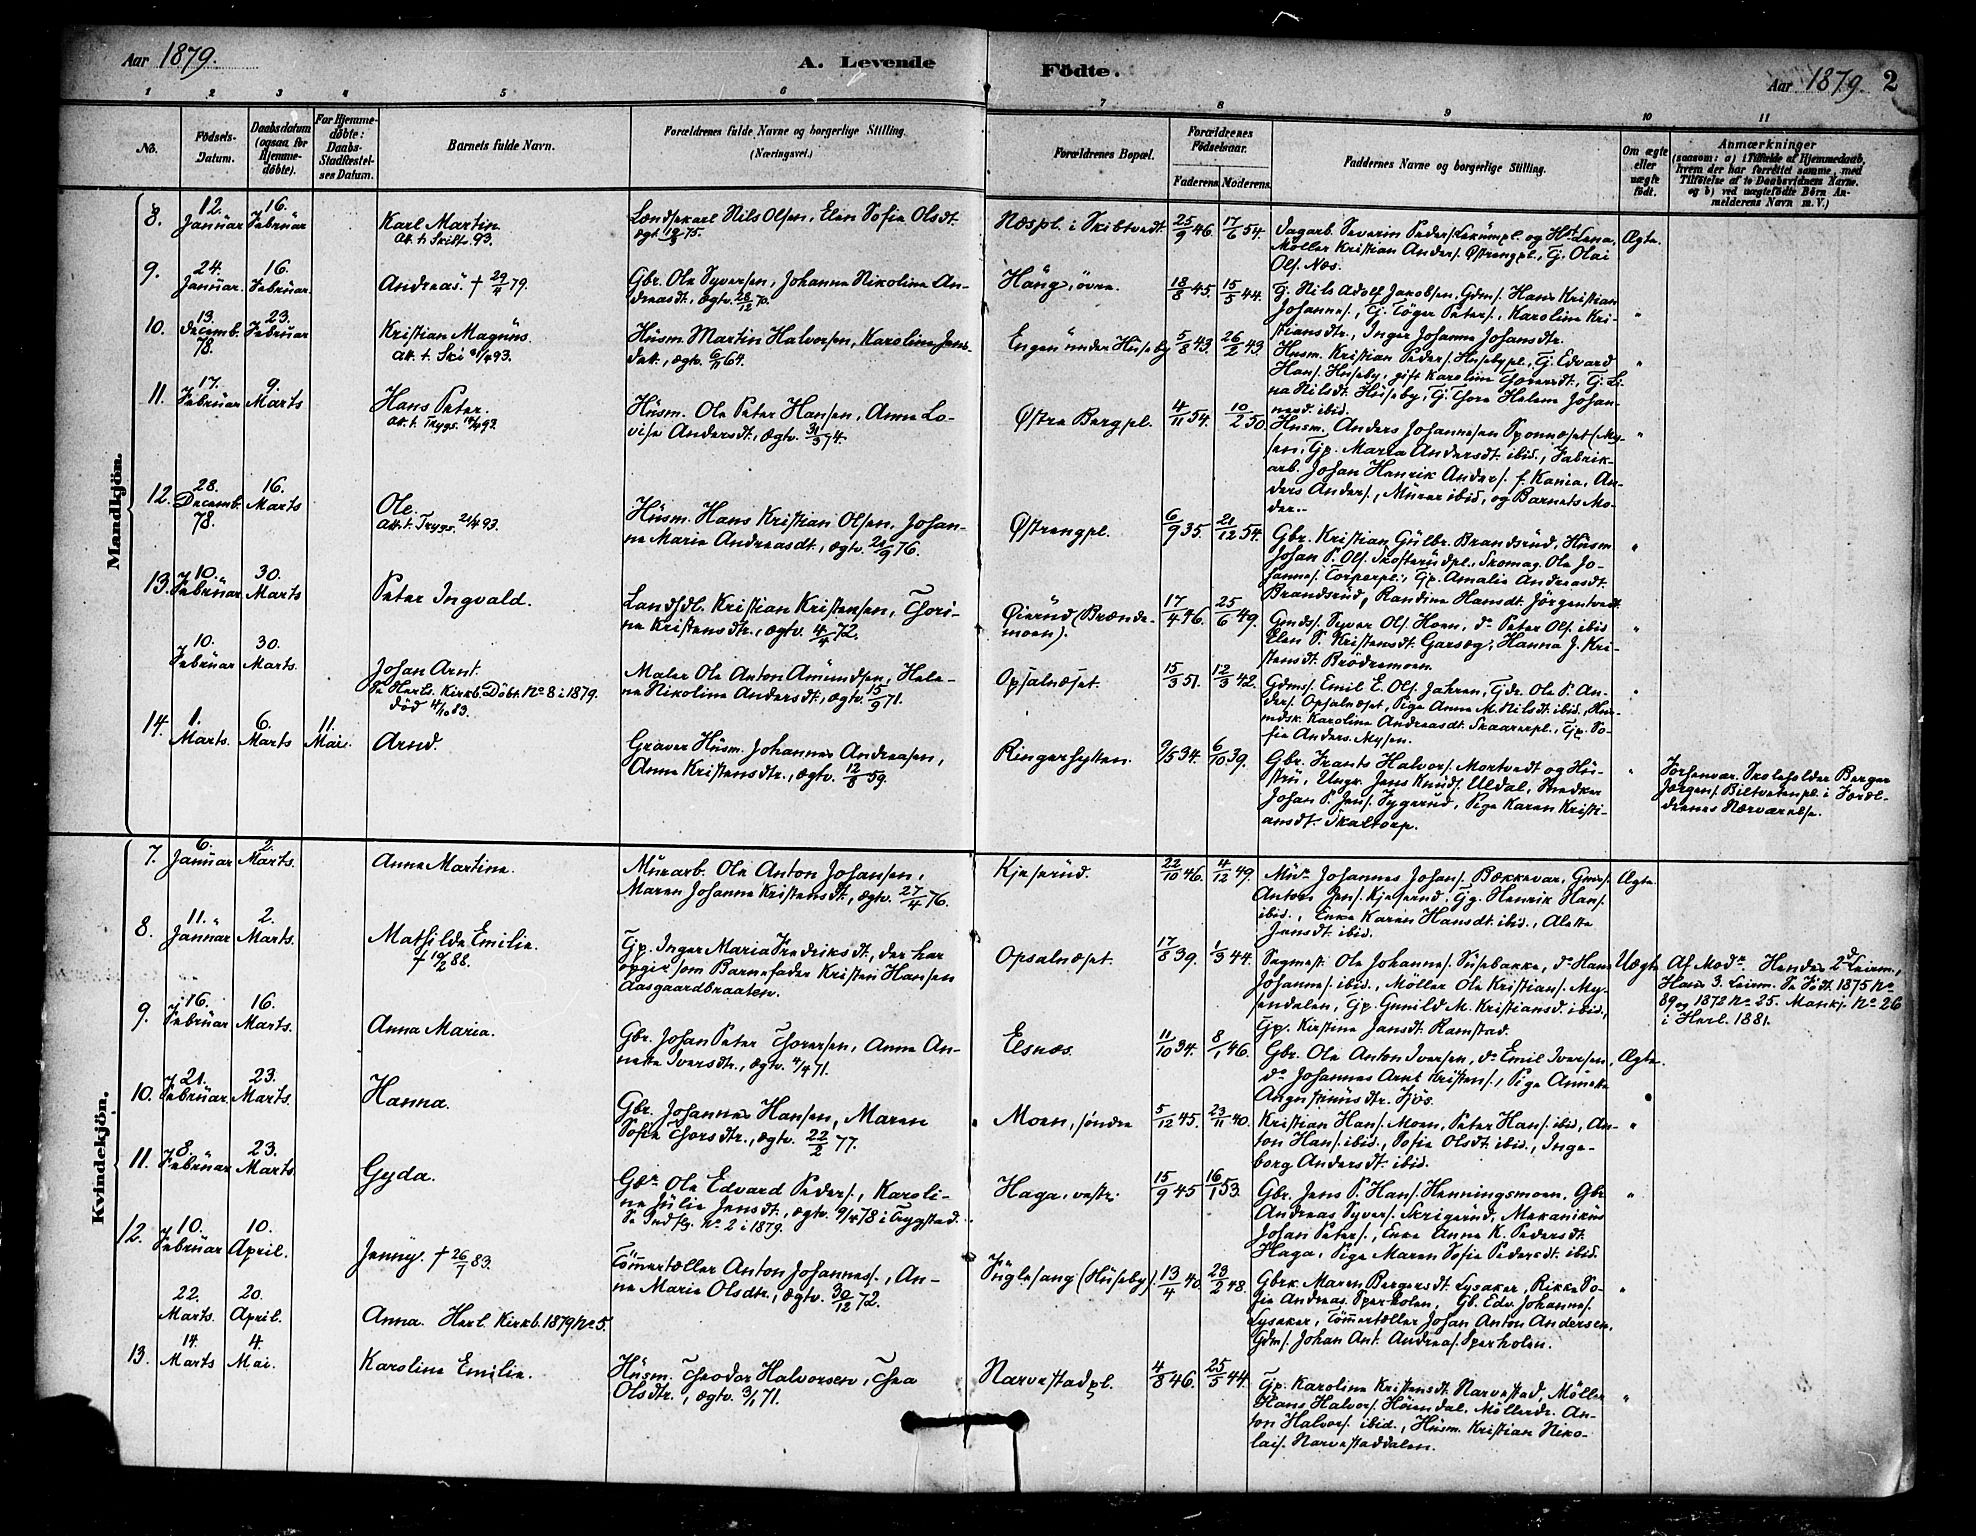 Aar 1879.
A. Levende
Födte.
Aar 1879. 2
1 2 3 4 5 6
7 8 9 10 11
No.
Födsels-
Datum.
Daabsdatum
(ogsaa for
Hjemme-
döbte).
For Hjemme-
döbte:
Daabs-
Stadfæstel-
ses Datum.
Barnets fulde Navn.
Forældrenes fulde Navne og borgerlige Stilling.
(Næringsvei.)
Forældrenes Bopæl.
Forældrenes
Födselsaar.
Faderens. Moderens.
Faddernes Navne og borgerlige Stilling.
Om ægte
eller
uægte
födt.
Anmærkninger
(saasom: a) i Tilfælde af Hjemmedaab,
hvem der har forrettet samme, med
Tilföielse af to Daabsvidners Navne,
og b) ved uægtefödte Börn An-
melderens Navn m. V.)
Mandkjön.
8. 12. Januar 16. Februar
Karl Martin
Att. t. Skibtv. 93.
Nils Olsen, Elen Sofie Olsdt.
Næspl. i Skibtvedt 25/9 46. 17/6 54.
Dagarb. Severin Peders. og Hst. Lena,
Möller Kristian Anders. Östrengpl., Tj. Olai
Ols. Næs.
Ægte.
9. 24. Januar. 16. Februar.
Andreas. † 29/4 79.
Gbr. Ole Syversen, Johanne Nikoline An-
dreasdt., ægtv. 28/12 70.
Haug, övre. 18/8 45. 15/5 44.
Tj. Nils Adolf Jakobsen, Gdms. Hans Kristian
Johannes., Tj. Töger Peters., Karoline Kri-
stiansdtr., Inger Johanne Johansdtr.
"
10. 13. Decemb. 78. 23. Februar
Kristian Magnus.
Att. t. Ski 93.
Husm. Martin Halvorsen, Karoline Jens-
datt., ægtv. 6/11 64.
Engen under Huseby 5/8 43. 26/2 43.
Husm. Kristian Peders. Husebypl., Tj. Edvard
Hans. Huseby, gift Karoline Thoresdt., Tj. Li-
na Nilsdt. Huseby, Tj. Thore Helene Johan-
nesd. ibid.
"
11. 17. Februar 9. Marts
Hans Peter.
Att. t. Trygs. 93.
Husm. Ole Peter Hansen, Anne Lo-
vise Andersdt., ægtv. 31/3 74.
Østre Bergpl. 4/11 54. 10/2 50.
Husm. Anders Johannesen Sponnæset (My-
sen, Tp. Maria Andersdt. ibid., Fabrik-
arb. Johan Henrik Anders. f. Kania, An-
ders Anders., Murer ibid., og Barnets Mo-
der.
"
12. 28. Decemb. 78. 16. Marts
Ole.
Att. t. Trygs. 21/4 93.
Husm. Hans Kristian Olsen, Johan-
ne Marie Andreasdt., ægtv. 21/9 76.
Østrengpl. 6/9 35. 21/12 54.
Gbr. Kristian Gulbr. Brandsrud, Husm.
Johan P. Ols. Skofterudpl., Skomag. Ole Jo-
hannes. Torperpl., Tp. Amalie Andreasdt.
Brandsrud, Randine Hansdt. Jörgentvedt.
"
13. 10. Februar 30. Marts
Peter Ingvald.
Landhdl. Kristian Kristensen, Thori-
ne Kristensdtr., ægtv. 4/4 72.
Øierud (Brænde-
moen). 17/4 46. 25/6 49.
Gmds. Syver Ols. Hoen, do Peter Ols. ibid.
Elen P. Kristensdt. Garseg, Hanna J. Kri-
stensdt. Brödremoen.
"
10. Februar 30. Marts.
Johan Arnt.
Se Herl. Kirkb. Döbt No 8 i 1879.
död 4/10 83.
Maler Ole Anton Amundsen, Hele-
ne Nikoline Andersdt., ægtv. 15/9 71.
Opsalnæset. 15/3 51. 12/3 42.
Gdms. Emil E. Ols. Jahren, Gdr. Ole P. An-
ders. Opsalnæset, Pige Anne M. Nilsdt. ibid.,
Karoline Andreasdt. Skaarerpl., Tp. So-
fie Anders. Mysen.
14. 1. Marts. 6. Marts 11. Mai.
Arnd.
Graver Husm. Johannes Andreasen,
Anne Kristensdtr., ægtv. 12/8 59.
Ringerhytten. 9/5 34. 6/10 39.
Gbr. Frants Halvors. Mortvedt og Hu-
stru, Ungk. Jens Knuds. Uldal, Snedker
Johan P. Jens. Tygerud, Pige Karen Kristi-
ansdt. Skaltorp.
"
Forhenvær. Skoleholder Berger
Jörgens. Biltvetenpl. i Foræl-
drenes Nærværelse.
Kvindekjön.
7. 6. Januar 2. Marts.
Anne Martine.
Murarb. Ole Anton Johansen,
Maren Johanne Kristensdt., ægtv. 27/4 76.
Kjeserud. 22/10 46. 4/12 49.
Johannes Johans. Bækkevar,
Anton Jens. Kjeserud, Tg. Henrik Hans.
ibid., Enke Karen Hansdt. ibid., Alette
Jensdt. ibid.
Ægte.
8. 11. Januar 2. Marts.
Mathilde Emilie.
† 19/2 88.
Tp. Inger Maria Fredriksdt., der har
opgivet som Barnefader Kristen Hansen
Aasgaardbraaten.
Opsalnæset. 17/8 39. 1/3 44.
Sagmest. Ole Johannes. Susebakke, do Hans
Johannes. ibid., Möller Ole Kristians. My-
sendalen, Tp. Gunild M. Kristiansd. ibid.,
Tp. Kirstine Jansdt. Ramstad.
Uægte
Af Modr. Hendes 2d Leierm.,
Hans 3. Leierm. Se Födt. 1875 No
89 og 1872 No 25. Mankj. No 26
i Herl. 1881.
9. 16. Februar 16. Marts.
Anna Maria.
Gbr. Johan Peter Thoresen, Anne An-
nette Iversdtr., ægtv. 4/4 71.
Elsnæs. 11/10 34. 8/1 46.
Gbr. Ole Anton Iversen, do Emil Iversen,
do Johannes Arnt Kristens., Pige Annette
Augustinusdtr. Fjös.
Ægte.
10. 21. Februar. 23. Marts.
Hanna.
Gbr. Johannes Hansen, Maren
Sofie Thorsdtr., ægtv. 22/2 77.
Moen, söndre 5/12 45. 23/11 40.
Kristian Hans. Moen, Peter Hans. ibid., An-
ton Hans. ibid., Sofie Olsdt. ibid., Inge-
borg Andersdt. ibid.
"
11. 8. Februar 23. Marts
Gyda.
Gbr. Ole Edvard Peders., Karoli-
ne Julie Jensdt., ægtv. 9/4 78 i Trygstad.
Se Indfl. No 2 i 1879.
Haga, vestr. 15/9 45 16/1 53.
Gbr. Jens P. Hans. Henningsmoen, Gbr.
Andreas Syvers. Skrigerud, Mekanikus
Johan Peters., Enke Anne K. Pedersdt.
Haga, Pige Maren Sofie Pedersdt. ibid.
"
12. 10. Februar 10. April.
Jenny. † 26/7 83.
Tömmertæller Anton Johannes., An-
ne Marie Olsdtr., ægtv. 30/12 72.
Fuglesang (Huseby). 13/4 40. 23/2 48.
Gbrk. Maren Bergersdt. Lysaker, Rikke So-
fie Andreas. Sperholen, Gb. Edv. Johannes.
Lysaker, Tömmertæller Johan Anton Andersen,
Gdms. Johan Ant. Andreas. Sperholen.
"
22. Marts. 20. April.
Anna. Herl. Kirkb. 1879 No 5.
13. 14. Marts 4. Mai.
Karoline Emilie.
Husm. Theodor Halvorsen, Thea
Olsdtr., ægtv. 3/1 71.
Narvestadpl. 4/8 46. 25/5 44.
Tp. Karoline Kristensdt. Narvestad, Möller
Hans Halvors. Höiendal, Möllerdr. An-
ton Halvors. ibid., Husm. Kristian Niko-
lais. Narvestaddalen.
"